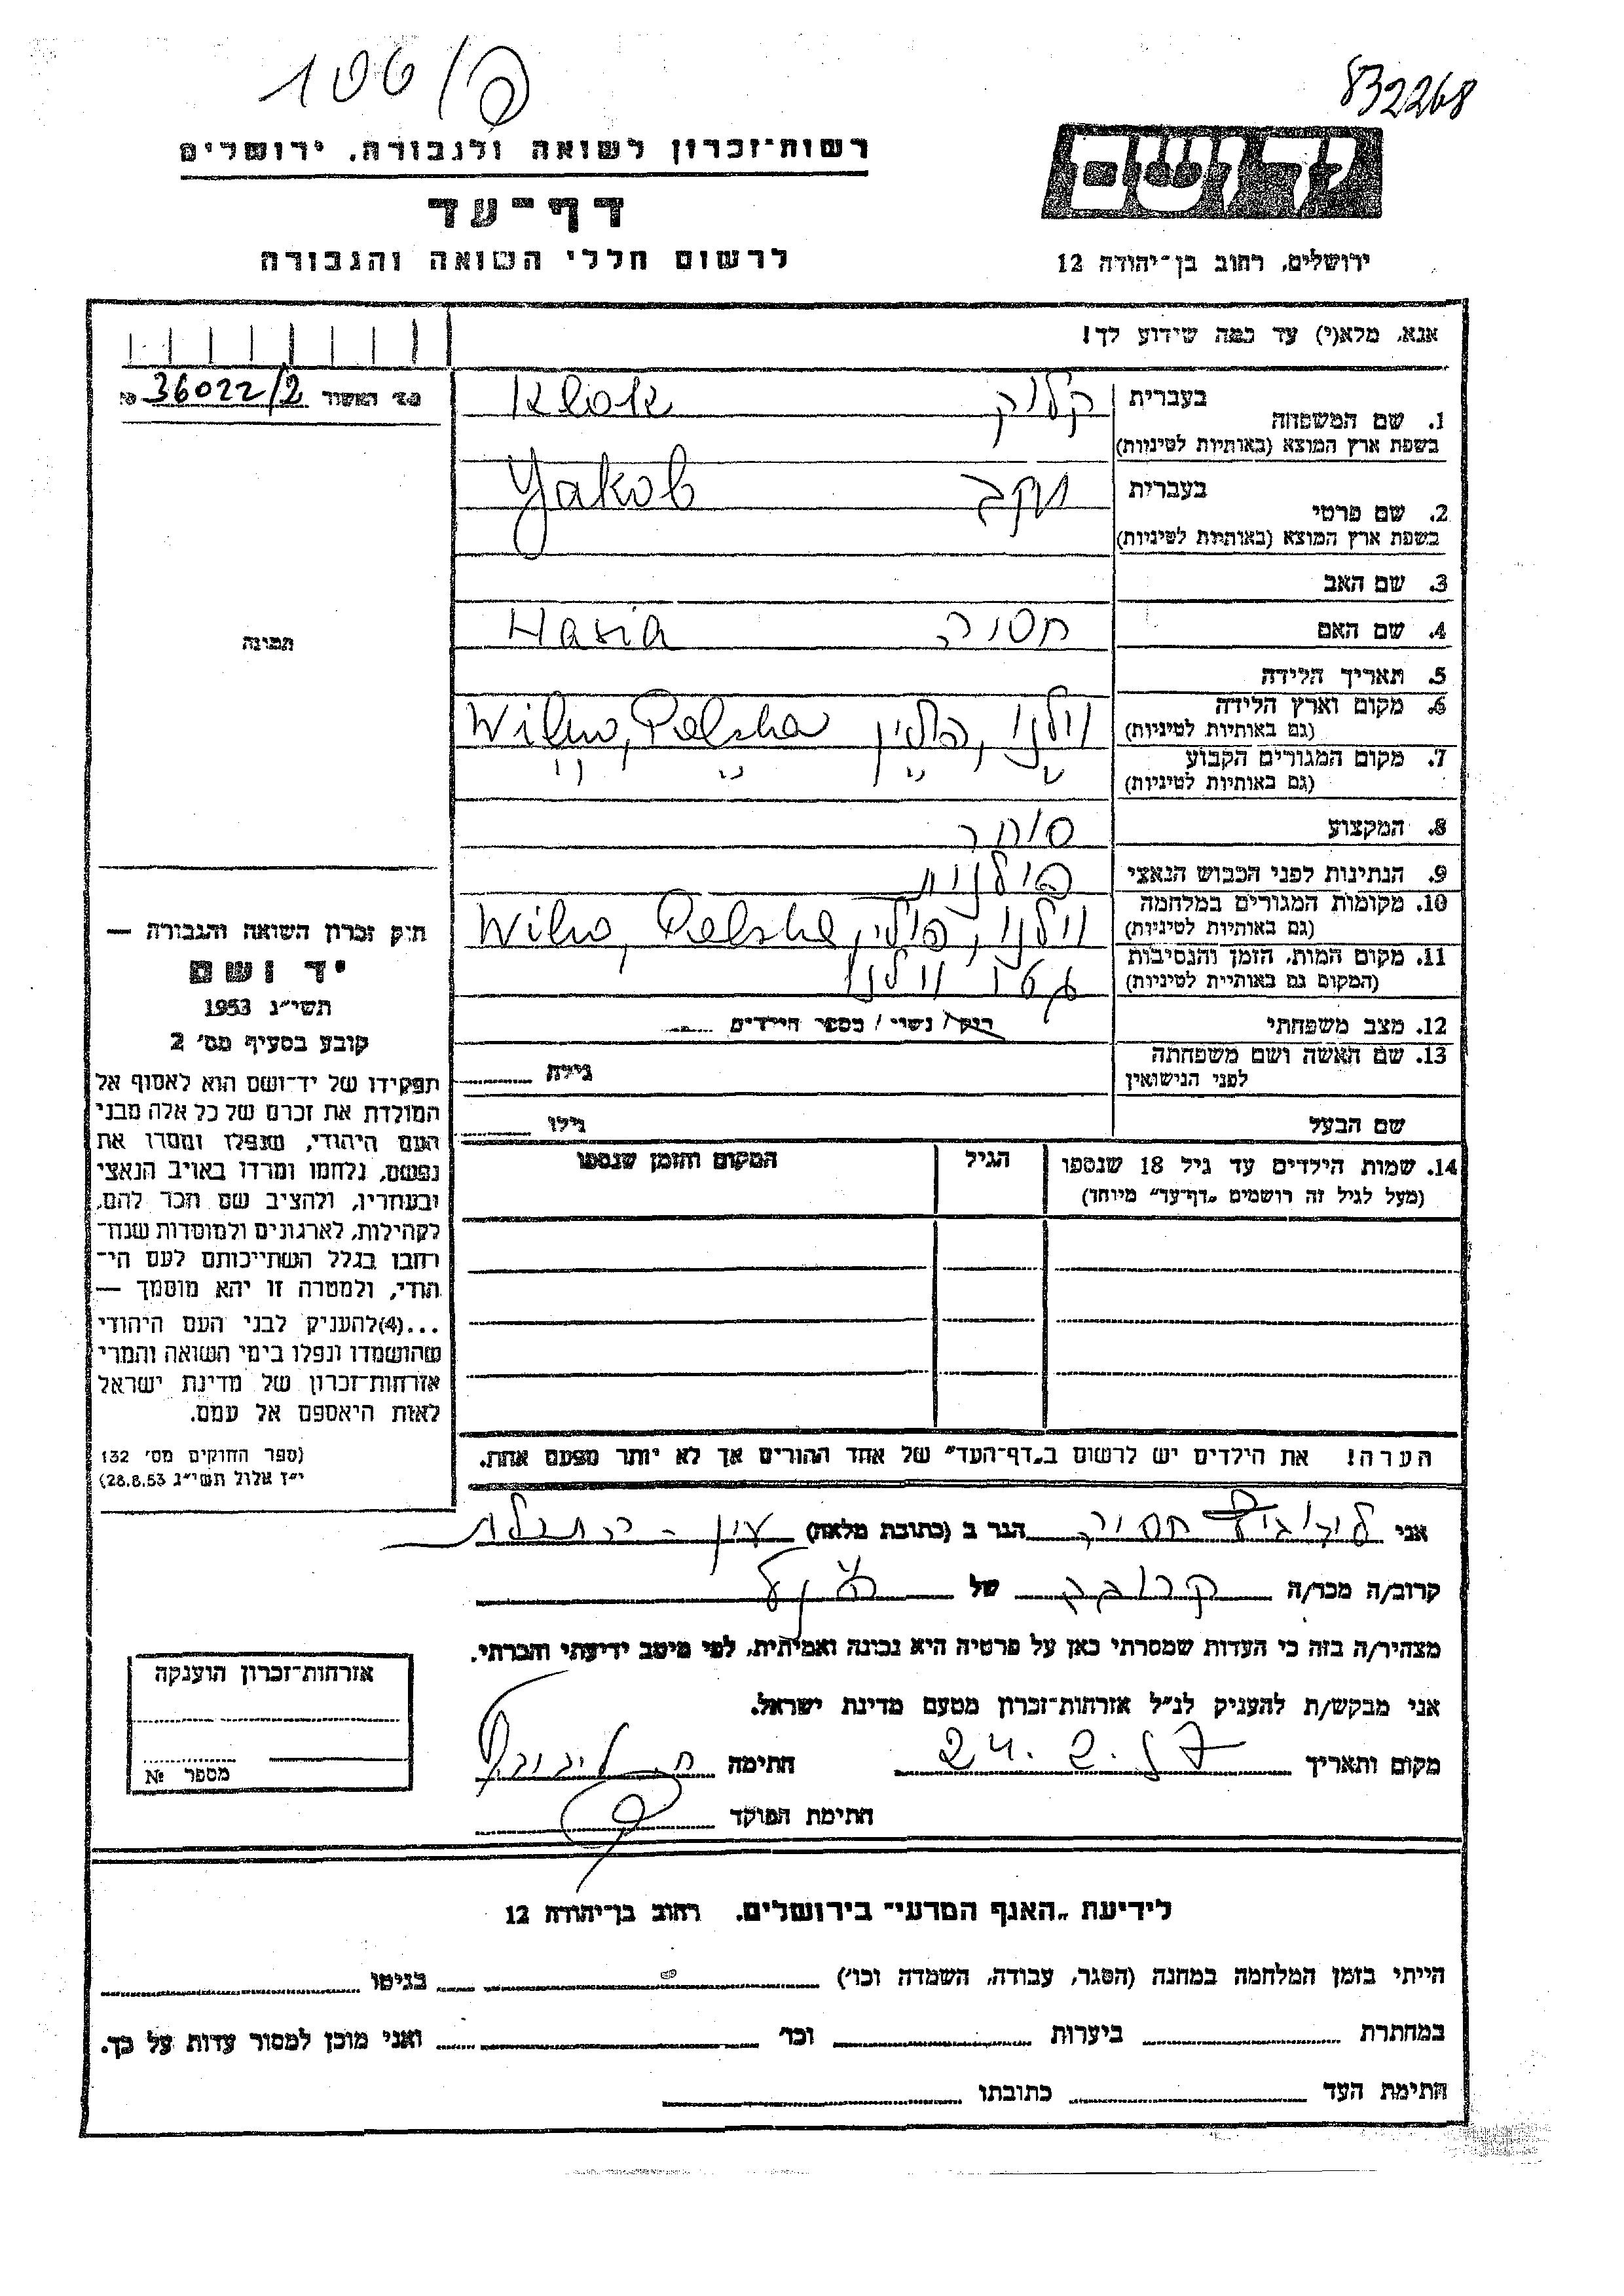 106/פ
832268
יד ושם
רשות־זכרון לשואה ולגבורה, ירושלים
דף־עד
לרשום חללי השואה והגבורה
ירושלים, רחוב בן־יהודה 12
אנא, מלא(י) עד כמה שידוע לך!
מס׳ האשור 36022/2
1. שם המשפחה בעברית קלוק
בשפת ארץ המוצא (באותיות לטיניות) Klok
2. שם פרטי בעברית יעקב
בשפת ארץ המוצא (באותיות לטיניות) Yakob
3. שם האב
4. שם האם חסיה Hasia
5. תאריך הלידה
6. מקום וארץ הלידה
(גם באותיות לטיניות) וילנו, פולין Wilno, Polska
7. מקום המגורים הקבוע
(גם באותיות לטיניות) " " " "
8. המקצוע סוחר
9. הנתינות לפני הכבוש הנאצי פולנית
10. מקומות המגורים במלחמה
(גם באותיות לטיניות) וילנו, פולין, Wilno, Polska
11. מקום המות, הזמן והנסיבות
(המקום גם באותיית לטיניות) גטו וילנו
12. מצב משפחתי רווק / נשוי / מספר הילדים
13. שם האשה ושם משפחתה
לפני הנישואין גילה
שם הבעל גילו
14. שמות הילדים עד גיל 18 שנספו הגיל המקום והזמן שנספו
(מעל לגיל זה רושמים „דף־עד" מיוחד)
הערה! את הילדים יש לרשום ב„דף־העד" של אחד ההורים אך לא יותר מפעם אחת.
תמונה
חוק זכרון השואה והגבורה —
יד ושם
תשי״ג 1953
קובע בסעיף מס׳ 2
תפקידו של יד־ושם הוא לאסוף אל
המולדת את זכרם של כל אלה מבני
העם היהודי, שנפלו ומסרו את
נפשם, נלחמו ומרדו באויב הנאצי
ובעוזריו, ולהציב שם וזכר להם,
לקהילות, לארגונים ולמוסדות שנח־
רבו בגלל השתייכותם לעם הי־
הודי, ולמטרה זו יהא מוסמך —
...(4)להעניק לבני העם היהודי
שהושמדו ונפלו בימי השואה והמרי
אזרחות־זכרון של מדינת ישראל
לאות היאספם אל עמם.
(ספר החוקים מס׳ 132
י״ז אלול תשי״ג 28.8.53)
אני חסיה הגר ב (כתובת מלאה) עין - התכלת
קרוב/ה מכר/ה קרובה של הנ״ל
מצהיר/ה בזה כי העדות שמסרתי כאן על פרטיה היא נכונה ואמיתית, לפי מיטב ידיעתי והכרתי.
אני מבקש/ת להעניק לנ״ל אזרחות־זכרון מטעם מדינת ישראל.
מקום ותאריך 24.2.57 חתימה
חתימת הפוקד
אזרחות־זכרון הוענקה
מספר №
לידיעת „האגף המדעי" בירושלים. רחוב בן־יהודה 12
הייתי בזמן המלחמה במחנה (הסגר, עבודה, השמדה וכו׳) בגיטו
במחתרת ביערות וכו׳ ואני מוכן למסור עדות על כך.
חתימת העד כתובתו